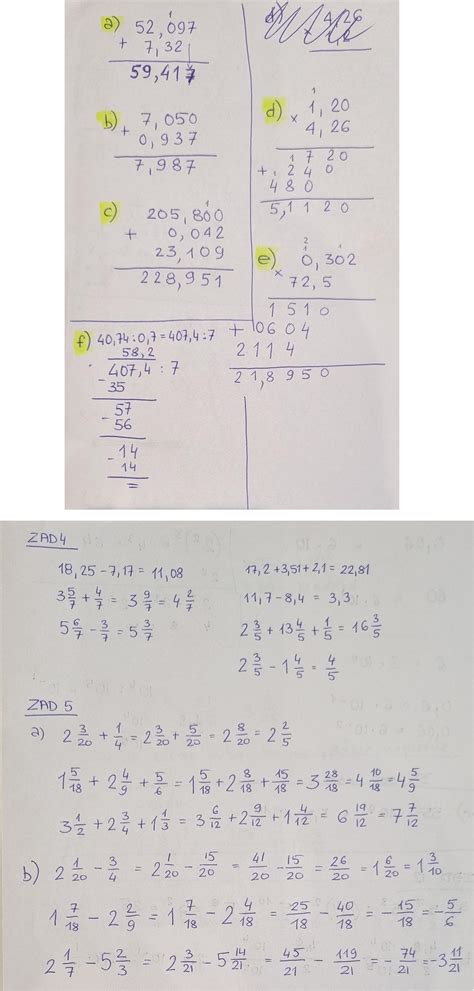 a) 52,097
+ 7,32
59,417
b) 7,050
+ 0,937
7,987
c) 205,800
+ 0,042
23,109
228,951
d) 1
× 1,20
4,26
1 7 2 0
+ 2 4 0
4 8 0
5,1 1 2 0
e) 2
1 1
0,302
× 72,5
1 5 1 0
+ 0 6 0 4
2 1 1 4
2 1,8 9 5 0
f) 40,74 : 0,7 = 407,4 : 7
58,2
407,4 : 7
- 35
57
- 56
14
- 14
=
ZAD 4
18,25 - 7,17 = 11,08
3 5/7 + 4/7 = 3 9/7 = 4 2/7
5 6/7 - 3/7 = 5 3/7
17,2 + 3,51 + 2,1 = 22,81
11,7 - 8,4 = 3,3
2 3/5 + 13 4/5 + 1/5 = 16 3/5
2 3/5 - 1 4/5 = 4/5
ZAD 5
a) 2 3/20 + 1/4 = 2 3/20 + 5/20 = 2 8/20 = 2 2/5
1 5/18 + 2 4/9 + 5/6 = 1 5/18 + 2 8/18 + 15/18 = 3 28/18 = 4 10/18 = 4 5/9
3 1/2 + 2 3/4 + 1 1/3 = 3 6/12 + 2 9/12 + 1 4/12 = 6 19/12 = 7 7/12
b) 2 1/20 - 3/4 = 2 1/20 - 15/20 = 41/20 - 15/20 = 26/20 = 1 6/20 = 1 3/10
1 7/18 - 2 2/9 = 1 7/18 - 2 4/18 = 25/18 - 40/18 = - 15/18 = - 5/6
2 1/7 - 5 2/3 = 2 3/21 - 5 14/21 = 45/21 - 119/21 = - 74/21 = -3 11/21